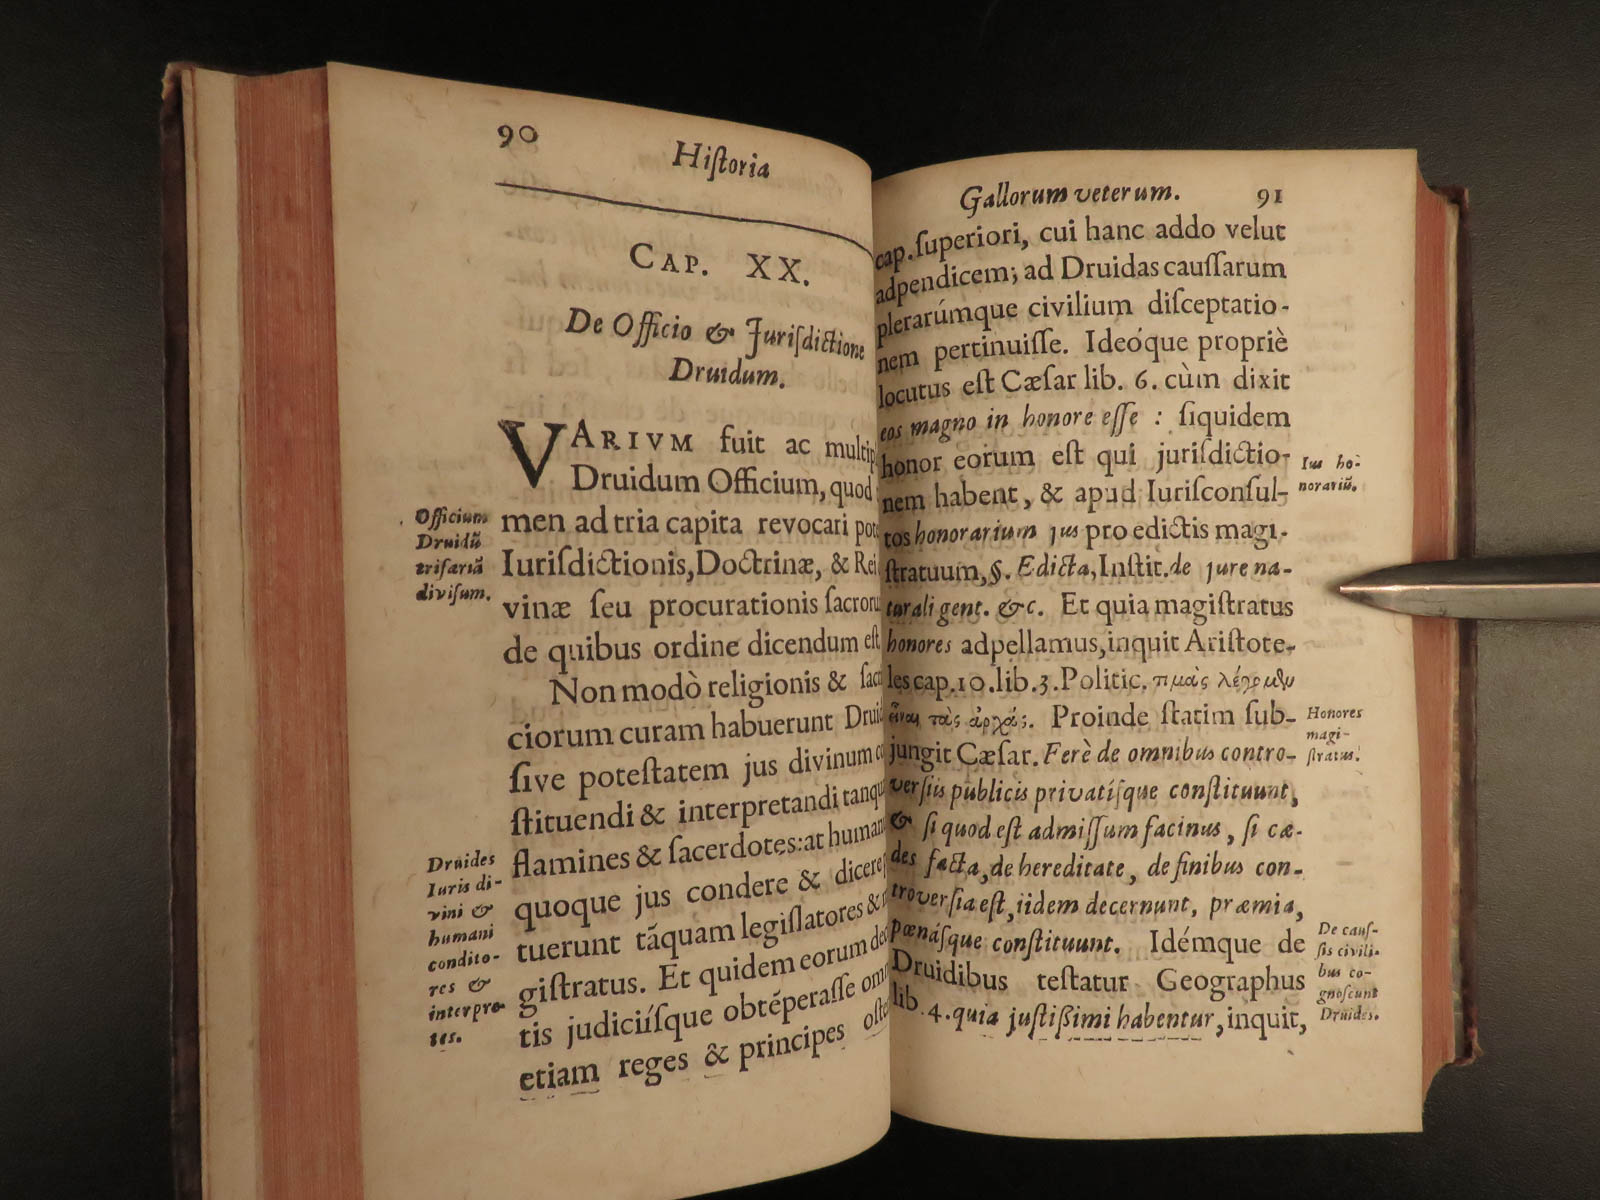 90
Hiſtoria
CAP. XX.
De Officio & Juriſdictione
Druidum.
VARIVM fuit ac multip
Druidum Officium, quod
men ad tria capita revocari pote
Iuriſdictionis, Doctrinæ, & Rei
vinæ ſeu procurationis ſacroru
de quibus ordine dicendum eſt
Non modò religionis & ſacr
ciorum curam habuerunt Druid
ſive poteſtatem jus divinum co
ſtituendi & interpretandi tanqu
flamines & ſacerdotes: at human
quoque jus condere & dicere
tuerunt tãquam legiſlatores &
giſtratus. Et quidem eorum dec
tis judiciíſque obtẽperaſſe omn
etiam reges & principes oſte
Officium
Druidũ
trifariã
diviſum.
Druides
Iuris di-
vini &
humani
condito-
res &
interpre-
tes.
Gallorum veterum. 91
cap. ſuperiori, cui hanc addo velut
adpendicem; ad Druidas cauſſarum
plerarúmque civilium diſceptatio-
nem pertinuiſſe. Ideóque propriè
locutus eſt Cæſar lib. 6. cùm dixit
eos magno in honore eſſe : ſiquidem
honor eorum eſt qui juriſdictio-
nem habent, & apud Iuriſconſul-
tos honorarium jus pro edictis magi-
ſtratuum, §. Edicta, Inſtit. de jure na-
turali gent. &c. Et quia magiſtratus
honores adpellamus, inquit Ariſtote-
les cap. 10. lib. 3. Politic. τιμὰς
τὰς ἀρχάς. Proinde ſtatim ſub-
jungit Cæſar. Ferè de omnibus contro-
verſiis publicis privatíſque conſtituunt,
& ſi quod eſt admiſſum facinus, ſi cæ-
des facta, de hereditate, de finibus con-
troverſia eſt, iidem decernunt, præmia,
pœnáſque conſtituunt. Idémque de
Druidibus teſtatur Geographus
lib. 4. quia juſtißimi habentur, inquit,
Ius ho-
norariũ.
Honores
magi-
ſtratus.
De cauſ-
ſis civili-
bus co-
gnoſcunt
Druides.